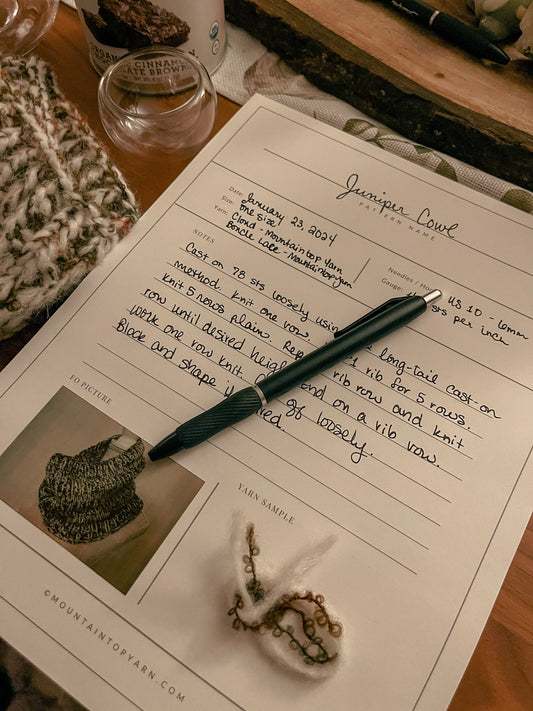 CINNAM
LATE BROWN
Juniper Cowl
PATTERN NAME
Date: January 23, 2024
Size: One Size
Yarn: Cloud - Mountaintop Yarn
Boncle Lace - Mountaintopyarn
Needles / Hoo US 10 - 6mm
Gauge: sts per inch
NOTES
Cast on 78 sts loosely using long-tail cast-on
method. Knit one row. 1 rib for 5 rows.
Knit 5 rows plain. Rep rib row and knit
row until desired heigh end on a rib row.
Work one row knit. off loosely.
Block and shape if
FO PICTURE
YARN SAMPLE
©MOUNTAINTOPYARN.COM